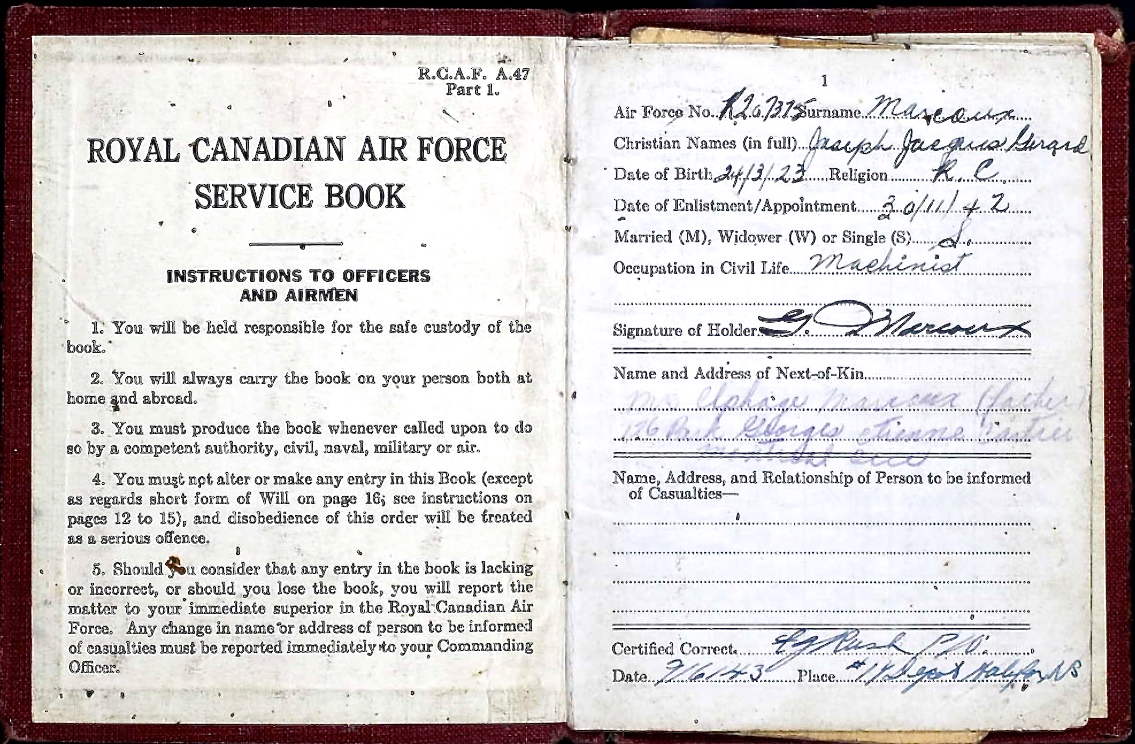 R.C.A.F. A.47
Part 1.
ROYAL CANADIAN AIR FORCE
SERVICE BOOK
INSTRUCTIONS TO OFFICERS
AND AIRMEN
1. You will be held responsible for the safe custody of the
book.
2. You will always carry the book on your person both at
home and abroad.
3. You must produce the book whenever called upon to do
so by a competent authority, civil, naval, military or air.
4. You must not alter or make any entry in this Book (except
as regards short form of Will on page 16; see instructions on
pages 12 to 15), and disobedience of this order will be treated
as a serious offence.
5. Should you consider that any entry in the book is lacking
or incorrect, or should you lose the book, you will report the
matter to your immediate superior in the Royal Canadian Air
Force. Any change in name or address of person to be informed
of casualties must be reported immediately to your Commanding
Officer.
1
Air Force No. R207375 Surname Marcoux
Christian Names (in full) Joseph Jacques Gerard
Date of Birth 24/3/23 Religion R.C.
Date of Enlistment/Appointment 30/11/42
Married (M), Widower (W) or Single (S) S.
Occupation in Civil Life Machinist
Signature of Holder G. Marcoux
Name and Address of Next-of-Kin
Marcoux (father)
126 Park Georges Etienne Cartier
Montreal
Name, Address, and Relationship of Person to be informed
of Casualties—
Certified Correct. Rush P/O.
Date 9/6/43 Place Depot Halifax NS